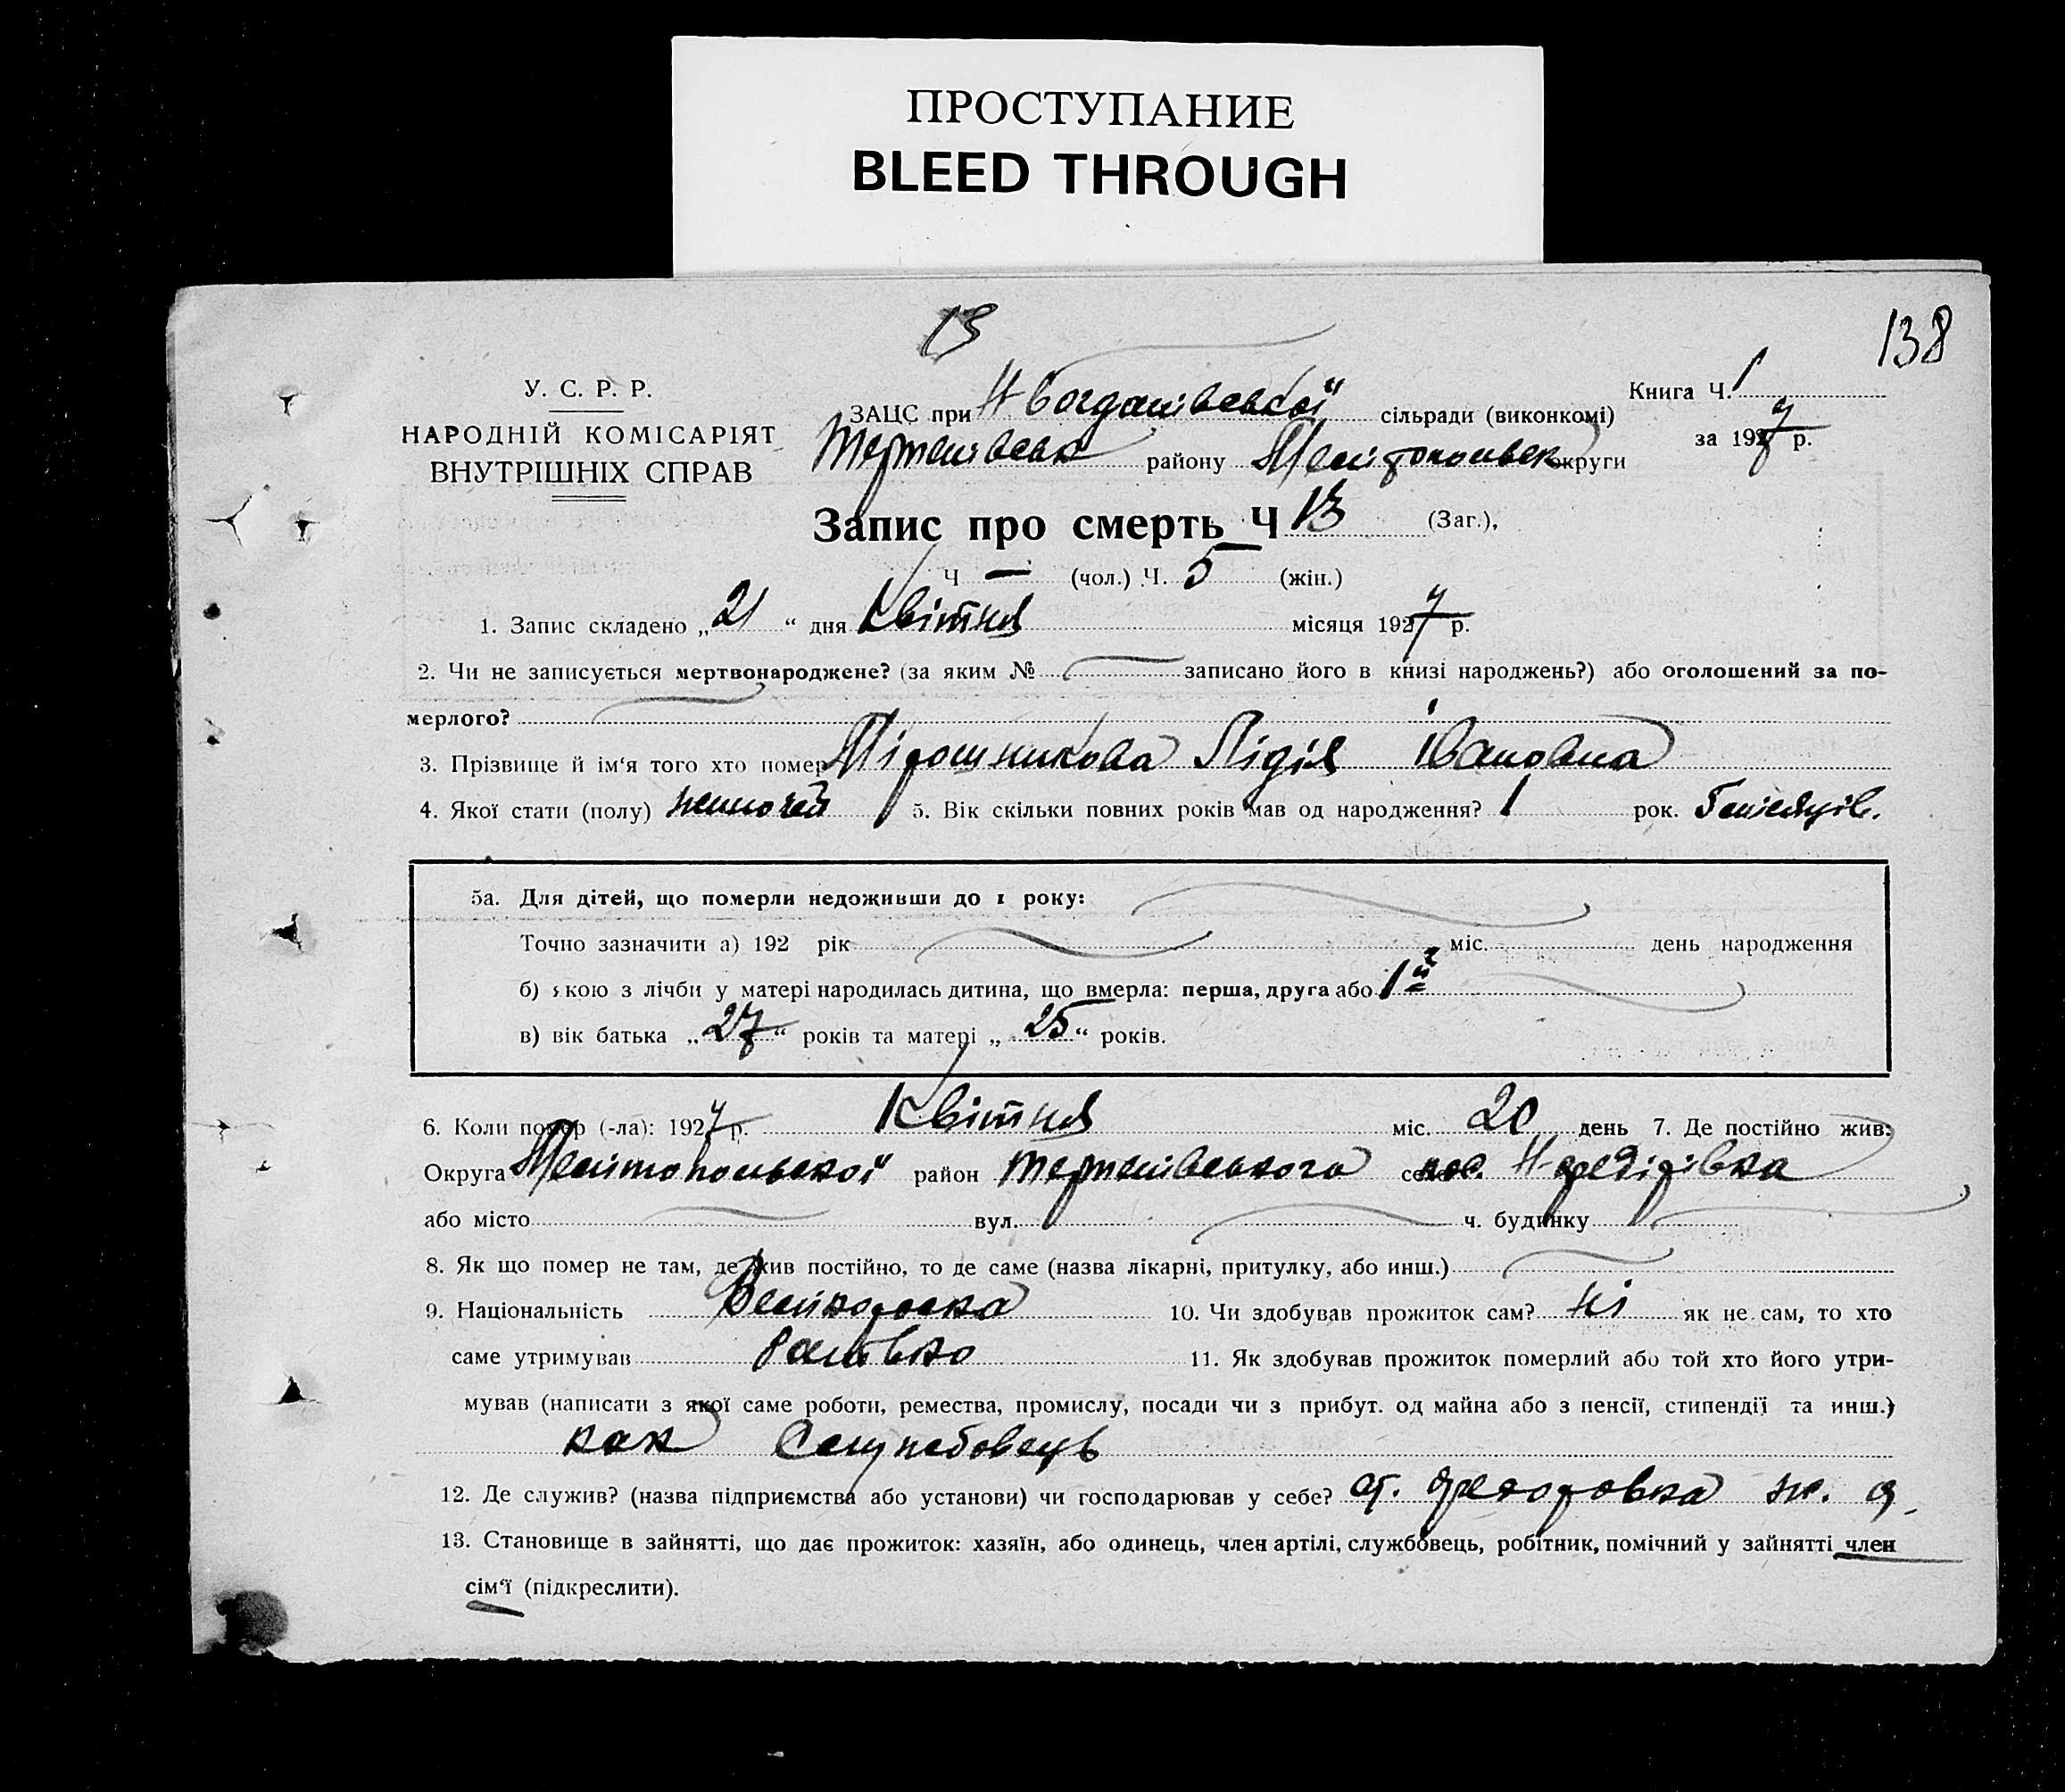 ПРОСТУПАНИЕ
BLEED THROUGH
13
138
У. С. Р. Р.
НАРОДНІЙ КОМІСАРІЯТ
ВНУТРІШНІХ СПРАВ
ЗАЦС при Н Богданівської сільради (виконкомі)
Терпенівськ району Мелітопольск округи
Книга Ч. 1
за 1927 р.
Запис про смерть Ч 13 (Заг.),
Ч — (чол.) Ч. 5 (жін.)
1. Запис складено „ 21 “ дня Квітня місяця 1927 р.
2. Чи не записується мертвонароджене? (за яким № записано його в книзі народжень?) або оголошений за по-
мерлого?
3. Прізвище й ім‘я того хто помер Мірошникова Лідія Івановна
4. Якої стати (полу) жіночей 5. Вік скільки повних років мав од народження? 1 рок. 5 місяців.
5а. Для дітей, що померли недоживши до 1 року:
Точно зазначити а) 192 рік міс. день народження
б) якою з лічби у матері народилась дитина, що вмерла: перша, друга або 1
в) вік батька „ 27 “ років та матері „ 25 “ років.
6. Коли помер (-ла): 1927 р. Квітня міс. 20 день 7. Де постійно жив:
Округа Мелітопольської район Терпенівського пос. Н-Федірівка
або місто вул. ч. будинку
8. Як що помер не там, де жив постійно, то де саме (назва лікарні, притулку, або инш.)
9. Національність Велікороска 10. Чи здобував прожиток сам? ні як не сам, то хто
саме утримував батько 11. Як здобував прожиток померлий або той хто його утри-
мував (написати з якої саме роботи, ремества, промислу, посади чи з прибут. од майна або з пенсії, стипендії та инш.)
как Служебовець
12. Де служив? (назва підприємства або установи) чи господарював у себе? ст. Федоровка ж. д.
13. Становище в зайнятті, що дає прожиток: хазяїн, або одинець, член артілі, службовець, робітник, помічний у зайнятті член
сім‘ї (підкреслити).